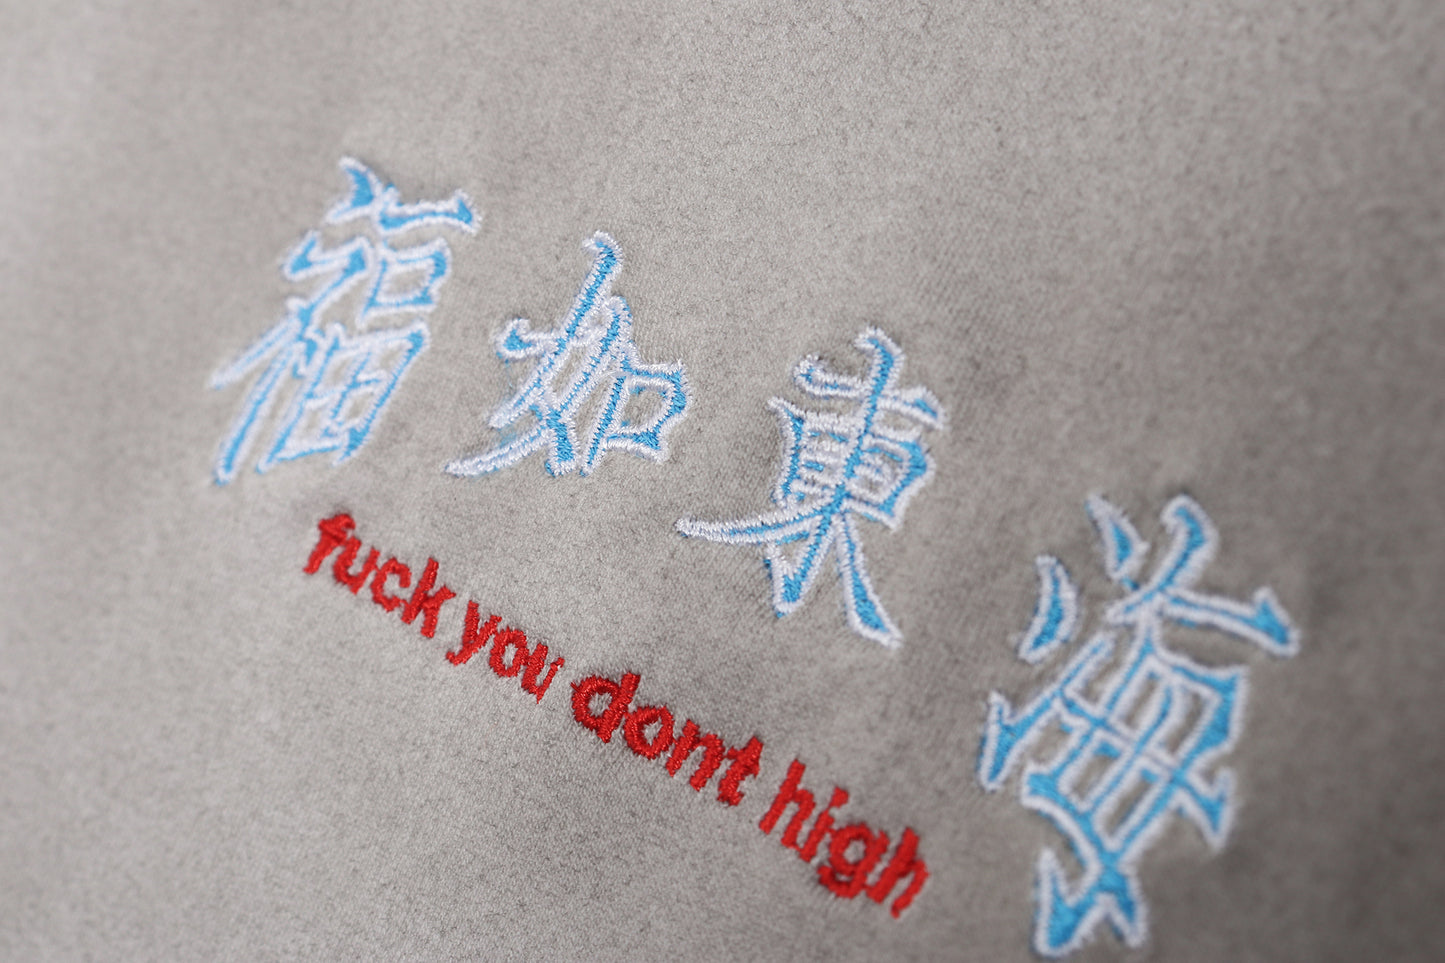 福如東海
fuck you dont high